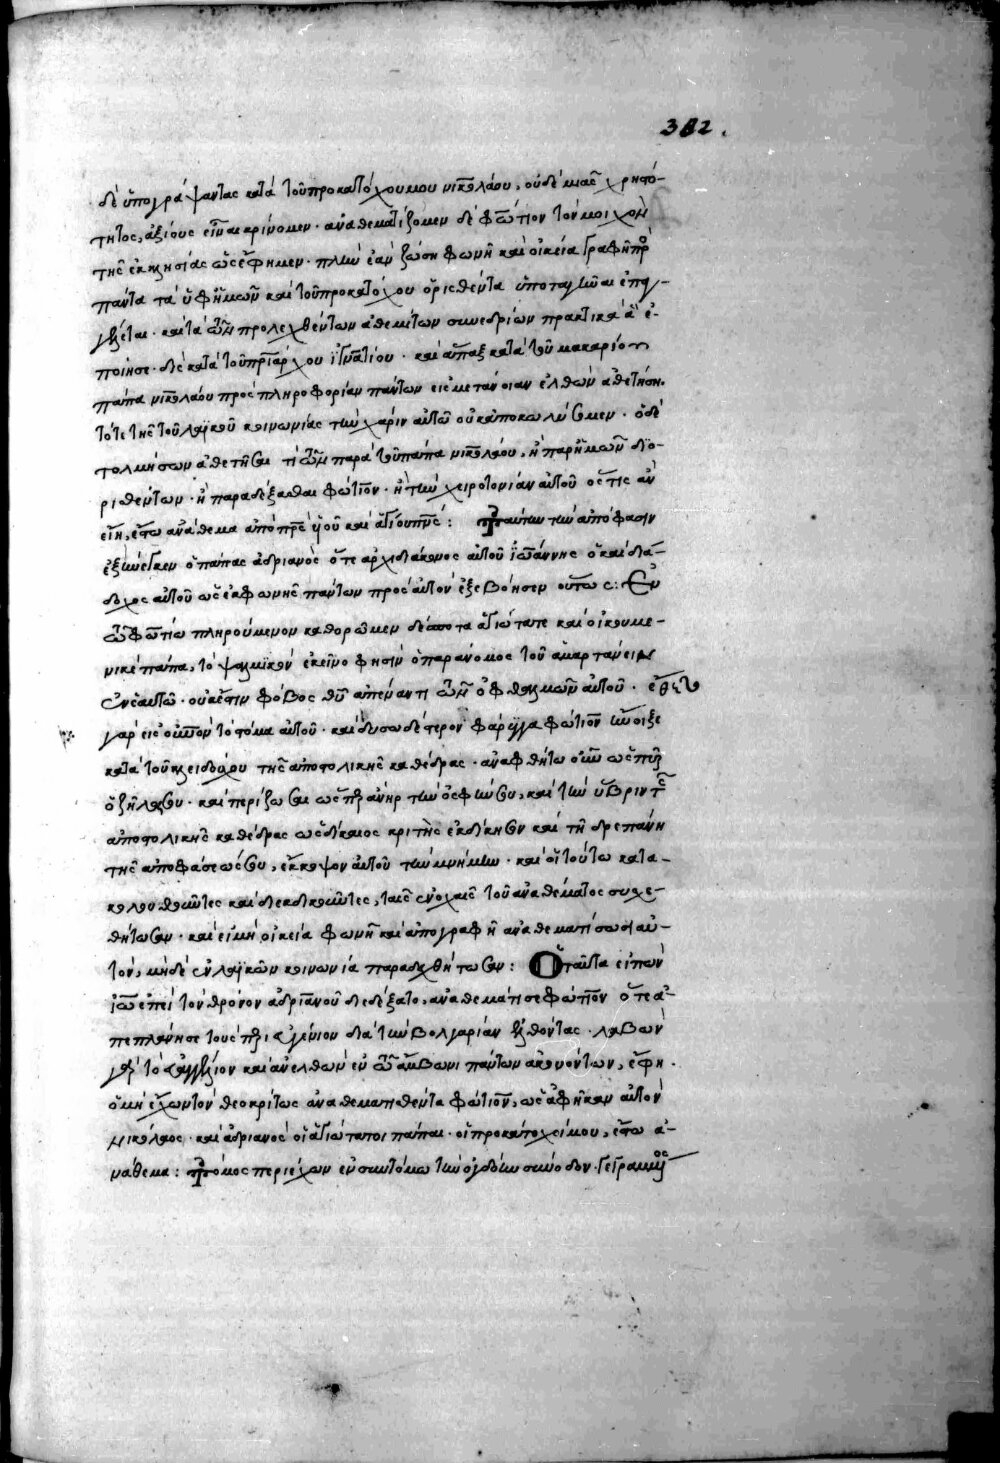 382.
δὲ ὑπογράψαντας κατὰ τοῦ προκατόχου μου νικολάου, οὐδὲ μιᾶς χρηστό-
τητος, ἀξίους εἶναι κρίνομεν. ἀναθεματίζομεν δὲ φώτιον τὸν μοιχὸν
τῆς ἐκκλησίας ὡς ἔφημεν. πλὴν ἐὰν ζώση φωνῆ καὶ οἰκεία γραφῆ πρὸς
πάντα τὰ ὑφ' ἡμῶν καὶ τοῦ προκατόχου ὁρισθέντα ὑποταγῆναι ἐπαγ-
γέλεται. καὶ τὰ τῶν προλεχθέντων ἀθεμίτων συνεδρίων πρακτικὰ ἃ ἐ-
ποίησε. δὶς κατὰ τοῦ πατριάρχου ἰγνατίου. καὶ ἅπαξ κατὰ τοῦ μακαρίου
πάπα νικολάου πρὸς πληροφορίαν πάντων εἰς μετάνοιαν ἐλθὼν ἀθετήση.
τότε τῆς τοῦ λαϊκοῦ κοινωνίας τὴν χάριν αὐτῶ οὐκ ἀποκωλύσωμεν. ὁ δὲ
τολμήσων ἀθετῆσαι τὶ τῶν παρὰ τοῦ πάπα νικολάου, ἢ παρ' ἡμῶν διο-
ρισθέντων. ἢ παραδέξασθαι φώτιον. ἢ τὴν χειροτονίαν αὐτοῦ ὅστις ἂν
εἴη, ἔστω ἀνάθεμα ἀπὸ πρς υἱοῦ καὶ ἁγίου πνς: ταύτην τὴν ἀπόφασιν
ἐξήνεγκεν ὁ πάπας ἀδριανὸς ὅτε ἀρχιδιάκονος αὐτοῦ ἰωάννης ὁ καὶ διά-
δοχος αὐτοῦ ὡς ἐκ φωνῆς πάντων πρὸς αὐτὸν ἐξεβόησεν οὕτως: Ἐν
τῶ φωτίω πληρούμενον καθορῶμεν δέσποτα ἁγιώτατε καὶ οἰκουμε-
νικὲ πάπα, τὸ ψαλμικὸν ἐκεῖνο φησὶν ὁ παράνομος τοῦ ἁμαρτάνειν
ἐν ἑαυτῶ. οὐκ ἔστιν φόβος θυ ἀπέναντι τῶν ὀφθαλμῶν αὐτοῦ. ἔθετο
γὰρ εἰς οὐνον τὸ στόμα αὐτοῦ. καὶ δυσωδέστερον φάρυγγα φώτιον ἤνοιξε
κατὰ τοῦ κλειδούχου τῆς ἀποστολικῆς καθέδρας. ἀναφθήτω οὖν ὡς πῦρ
ὁ ζῆλος σου. καὶ περίζωσαι ὡς περ ἀνὴρ τὴν ὀσφύν σου, καὶ τὴν ὕβριν τῆς
ἀποστολικῆς καθέδρας ὡς δίκαιος κριτὴς ἐκδίκησον καὶ τῆ δρεπάνη
τῆς ἀποφάσεώς σου, ἔκκοψον αὐτοῦ τὴν μνήμην. καὶ οἱ τούτω κατα-
κολουθοῦντες καὶ διεκδικοῦντες, ταῖς ἐνοχαῖς τοῦ ἀναθέματος συσχε-
θήτωσαν. καὶ εἰ μὴ οἰκεία φωνῆ καὶ ἀπογραφῆ ἀναθεματίσωσι αὐ-
τὸν, μηδὲ ἐν λαϊκῶν κοινωνία παραδεχθήτωσαν: Ὁ ταῦτα εἰπὼν
ἰω ἐπεὶ τὸν θρόνον ἀδριανοῦ διεδέξατο, ἀναθεμάτισε φώτιον ὅτε ἀ-
πεπλάνησε τοὺς περὶ εὐγένιον διὰ τὴν βολγαρίαν ἐλθόντας. λαβὼν
γὰρ τὸ εὐαγγέλιον καὶ ἀνελθὼν ἐν τῶ ἄμβωνι πάντων ἀκουόντων, ἔφη.
ὁ μὴ ἔχων τὸν θεοκρίτως ἀναθεματισθέντα φώτιον, ὡς ἀφῆκαν αὐτὸν
νικόλαος. καὶ ἀδριανὸς οἱ ἁγιώτατοι πάπαι. οἱ προκάτοχοί μου, ἔστω ἀ-
νάθεμα: τόμος περιέχων ἐν συντόμω τὴν ὀγδόην σύνοδον. γεγραμμένος